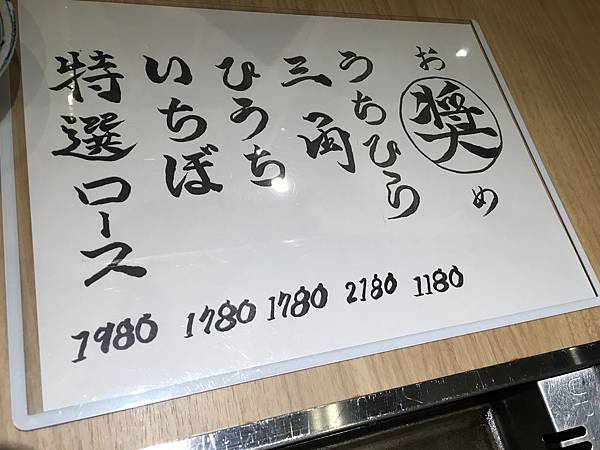 お奨め
うちひら
三角
ひうち
いちぼ
特選ロース
1180
2180
1780
1780
1980